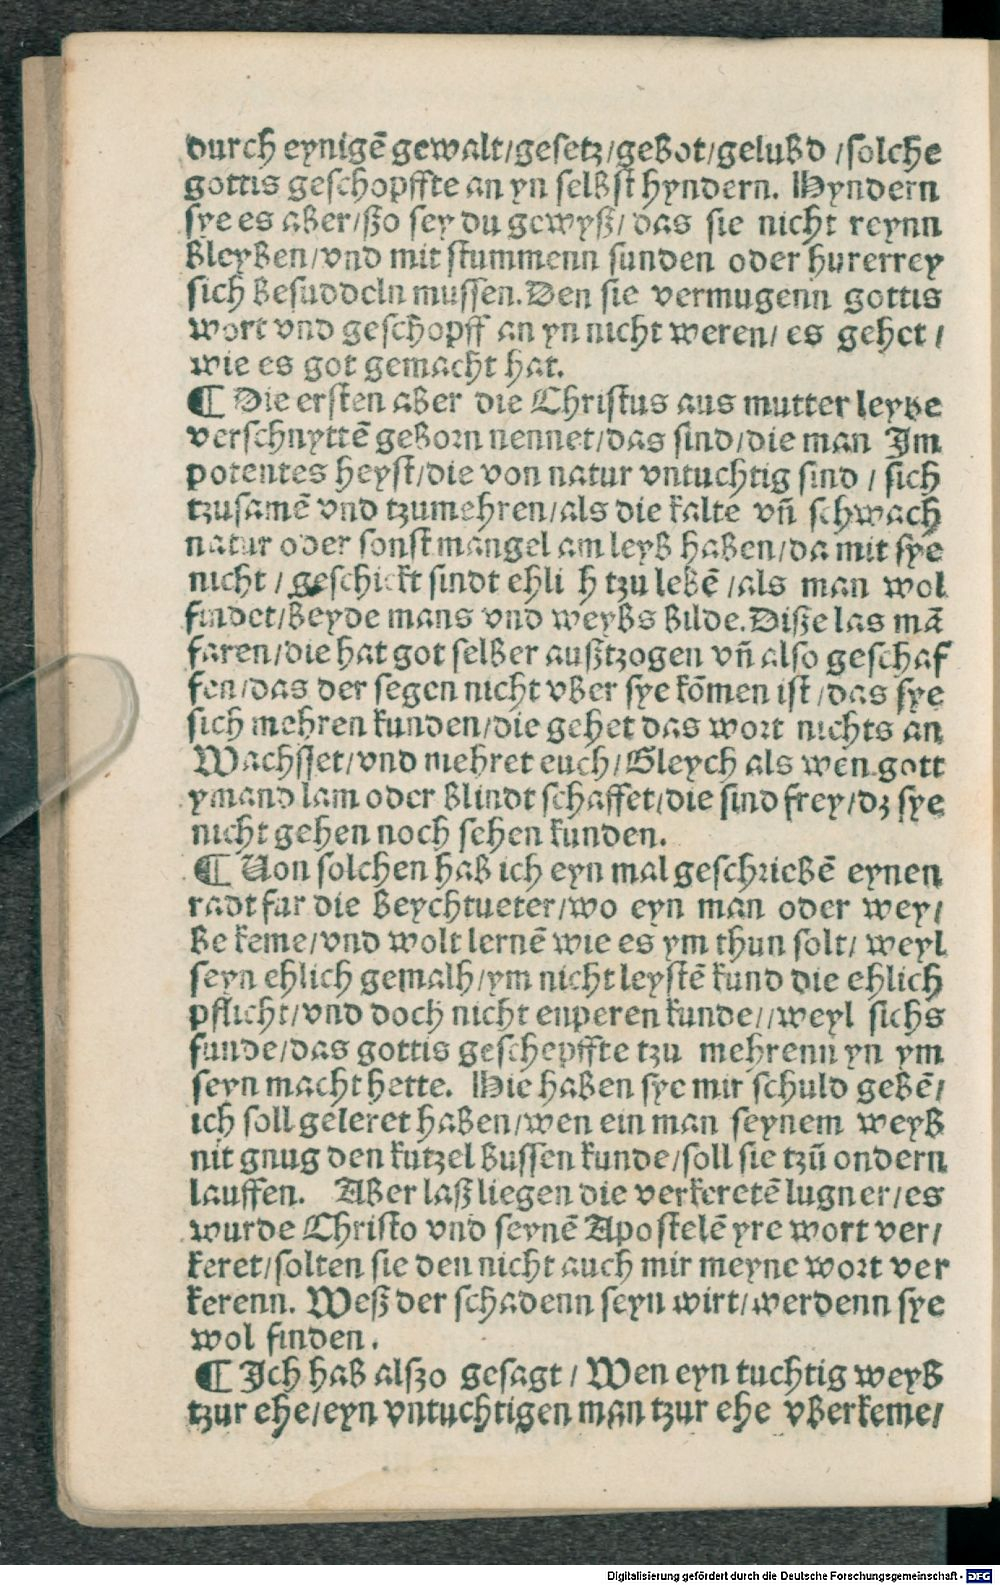 durch eynigē gewalt/gesetz/gebot/gelubd /solche
gottis geschopffte an yn selbst hyndern. Hyndern
sye es aber/ßo sey du gewyß/ das sie nicht reynn
bleyben/vnd mit stummenn sunden oder hurerrey
sich besuddeln mussen. Den sie vermugenn gottis
wort vnd geschopff an yn nicht weren/ es gehet /
wie es got gemacht hat.
¶ Die ersten aber die Christus aus mutter leybe
verschnyttē geborn nennet/das sind/die man Im
potentes heyst/die von natur vntuchtig sind / sich
tzusamē vnd tzumehren/als die kalte vñ schwach
natur oder sonst mangel am leyb haben/da mit sye
nicht / geschickt sindt ehli h tzu lebē /als man wol
findet/beyde mans vnd weybs bilde. Diße las mā
faren/die hat got selber außtzogen vñ also geschaf
fen/das der segen nicht vber sye kōmen ist /das sye
sich mehren kunden/die gehet das wort nichts an
Wachsset/vnd mehret euch/Gleych als wen gott
ymand lam oder blindt schaffet/die sind frey/dz sye
nicht gehen noch sehen kunden.
¶ Von solchen hab ich eyn mal geschriebē eynen
radt fur die beychtueter/wo eyn man oder wey/
be keme/vnd wolt lernē wie es ym thun solt/ weyl
seyn ehlich gemalh/ym nicht leystē kund die ehlich
pflicht/vnd doch nicht enperen kunde//weyl sichs
funde/das gottis geschepffte tzu mehrenn yn ym
seyn macht hette. Hie haben sye mir schuld gebē/
ich soll geleret haben/wen ein man seynem weyb
nit gnug den kutzel bussen kunde/soll sie tzū ondern
lauffen. Aber laß liegen die verkeretē lugner/es
wurde Christo vnd seynē Apostelē yre wort ver/
keret/solten sie den nicht auch mir meyne wort ver
kerenn. Weß der schadenn seyn wirt/werdenn sye
wol finden.
¶ Ich hab alßo gesagt / Wen eyn tuchtig weyb
tzur ehe/eyn vntuchtigen man tzur ehe vberkeme/
Digitalisierung gefördert durch die Deutsche Forschungsgemeinschaft - DFG